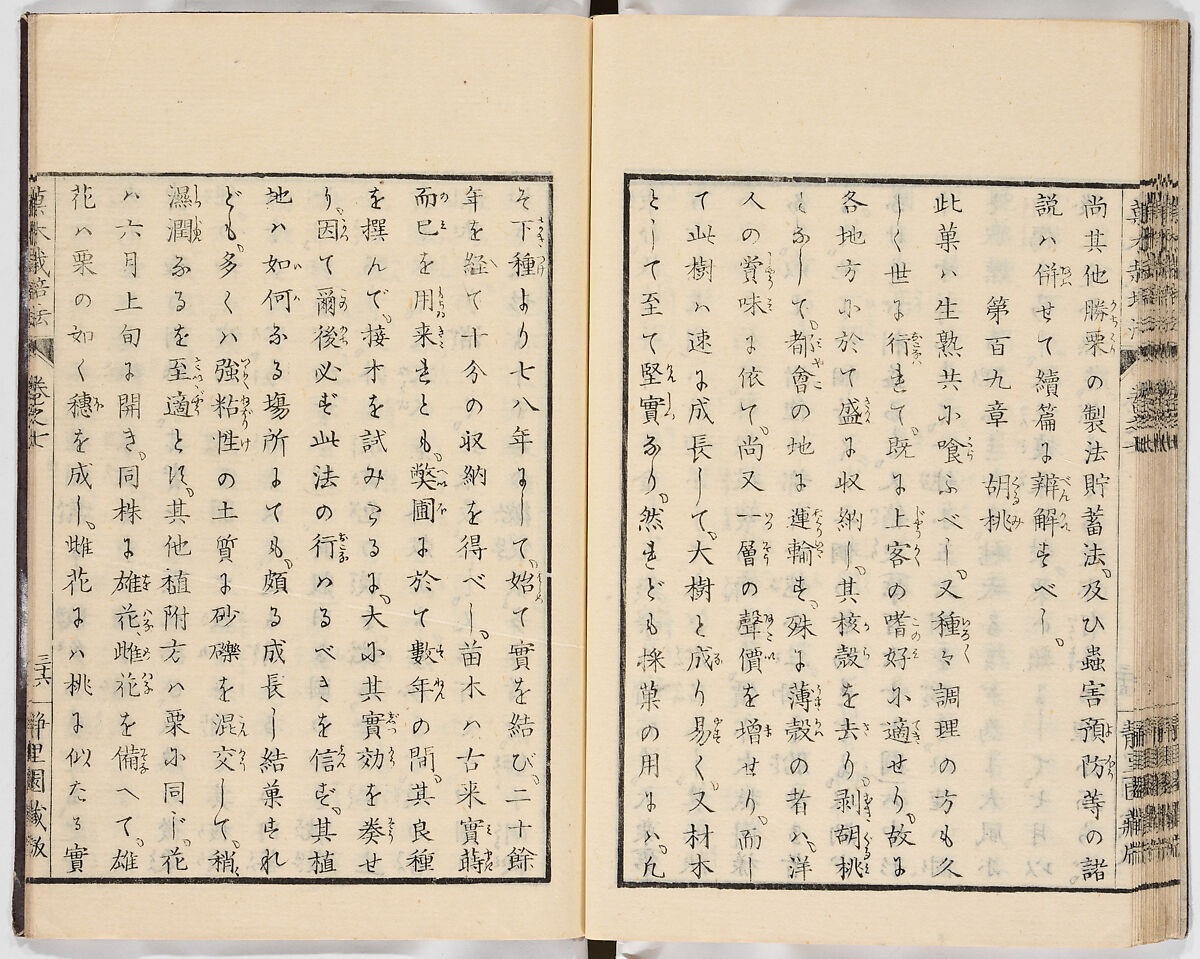 尚其他勝栗の製法貯蓄法、及ひ蟲害預防等の諸
説ハ併せて續篇に辨解すべし。
第百九章　胡桃
此菓ハ生熟共に喰ふべし、又種々調理の方も久
しく世に行れて、既に上客の嗜好に適せり、故に
各地方に於て盛に収納し、其核殻を去り、剥胡桃
となして、都會の地に運輸す、殊に薄殻の者ハ、洋
人の賞味に依て、尚又一層の聲價を増せり、而し
て此樹ハ速に成長して、大樹と成り易く、又材木
として至て堅實なり、然れども採菓の用にハ、凡
そ下種より七八年にして、始て實を結び、二十餘
年を経て十分の収納を得べし、苗木ハ古来實蒔
而已を用来れとも、弊圃に於て數年の間、其良種
を撰んで、接木を試みるに、大に其實効を奏せ
り、因て爾後必ず此法の行はるべきを信ず、其植
地ハ如何なる塲所にても、頗る成長し結菓すれ
ども、多くハ強粘性の土質に砂礫を混交して、稍
濕潤なるを至適とす、其他植附方ハ栗に同じ、花
ハ六月上旬に開き、同株に雄花、雌花を備へて、雄
花ハ栗の如く穗を成し、雌花にハ桃に似たる實
菓木栽培法　卷之七　三十六　静里園藏版